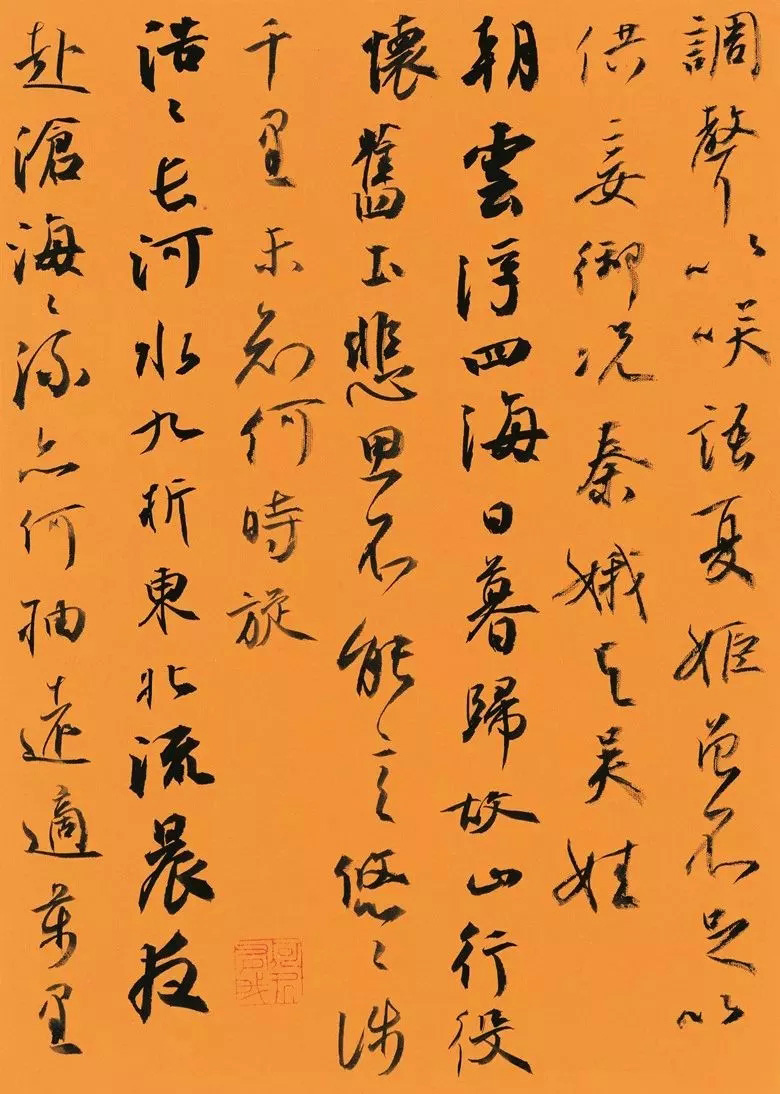 調聲以咲語夏姬曾不足以
供妾御况秦娥与吴娃
朝雲浮四海日暮歸故山行役
懷舊土悲思不能言悠〻涉
千里未知何時旋
浩〻长河水九折東北流晨夜
赴滄海〻流亦何抽遠適萬里